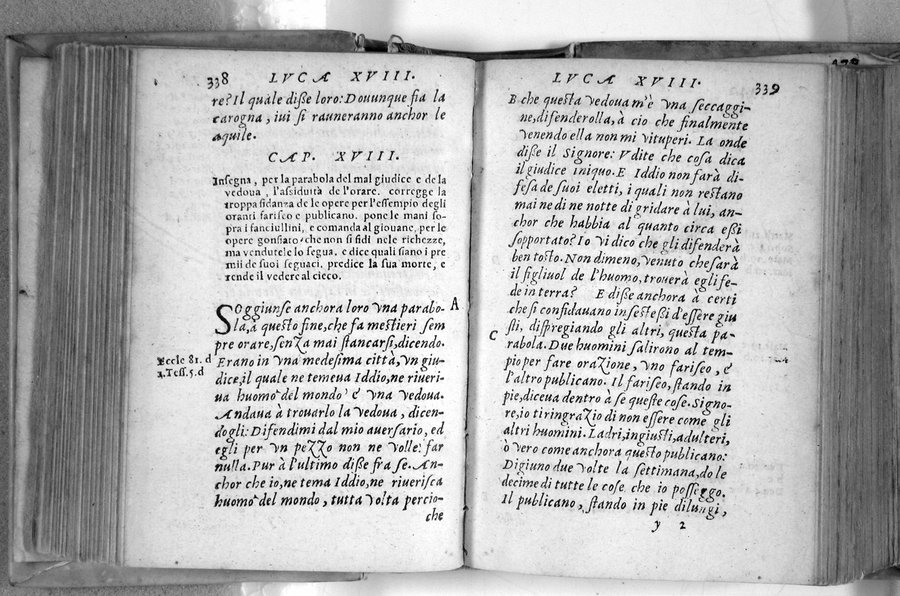 338 LVCA XVIII.
re? Il quale diſſe loro: Douunque ſia la
carogna, iui ſi rauneranno anchor le
aquile.
CAP. XVIII.
Inſegna, per la parabola del mal giudice e de la
vedoua, l'aſſiduità de l'orare. corregge la
troppa fidanza de le opere per l'eſſempio degli
oranti fariſeo e publicano. pone le mani ſo-
pra i fanciullini, e comanda al giouane, per le
opere gonfiato, che non ſi fidi nele ricchezze,
ma vendutele lo ſegua. e dice quali ſiano i pre
mii de ſuoi ſeguaci. predice la ſua morte, e
rende il vedere al cieco.
SOggiunſe anchora loro vna parabo- A
la, a queſto fine, che fa meſtieri ſem
pre orare, ſenza mai ſtancarſi, dicendo.
Eccle 81. d
1. Teſſ. 5. d
Erano in vna medeſima città, vn giu-
dice, il quale ne temeua Iddio, ne riueri-
ua huomo del mondo e vna vedoua.
Andaua à trouarlo la vedoua, dicen-
dogli: Difendimi dal mio auerſario, ed
egli per vn pezzo non ne volle far
nulla. Pur à l'ultimo diſſe fra ſe. An-
chor che io, ne tema Iddio, ne riueriſca
huomo del mondo, tutta volta percio-
che
LVCA XVIII. 339
B che queſta vedoua m'è vna ſeccaggi-
ne, difenderolla, à cio che finalmente
venendo ella non mi vituperi. La onde
diſſe il Signore: Vdite che coſa dica
il giudice iniquo. E Iddio non farà di-
feſa de ſuoi eletti, i quali non reſtano
mai ne di ne notte di gridare à lui, an-
chor che habbia al quanto circa eſſi
ſopportato? Io vi dico che gli difenderà
ben toſto. Non dimeno, venuto che ſarà
il figliuol de l'huomo, trouerà egli fe-
de in terra? E diſſe anchora à certi
che ſi confidauano in ſe ſteſſi d'eſſere giu
C ſti, diſpregiando gli altri, queſta pa-
rabola. Due huomini ſalirono al tem-
pio per fare orazione, vno fariſeo, e
l'altro publicano. Il fariſeo, ſtando in
pie, diceua dentro à ſe queſte coſe. Signo-
re, io ti ringrazio di non eſſere come gli
altri huomini. Ladri, ingiuſti, adulteri,
ò vero come anchora queſto publicano:
Digiuno due volte la ſettimana, do le
decime di tutte le coſe che io poſſeggo.
Il publicano, ſtando in pie dilungi,
y 2